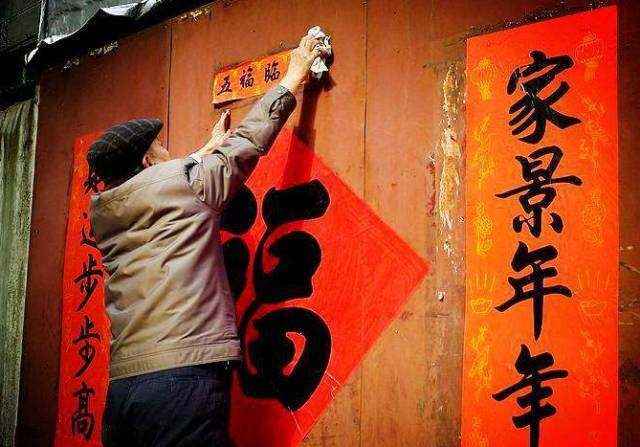 五福臨
福
家景年年
步步高